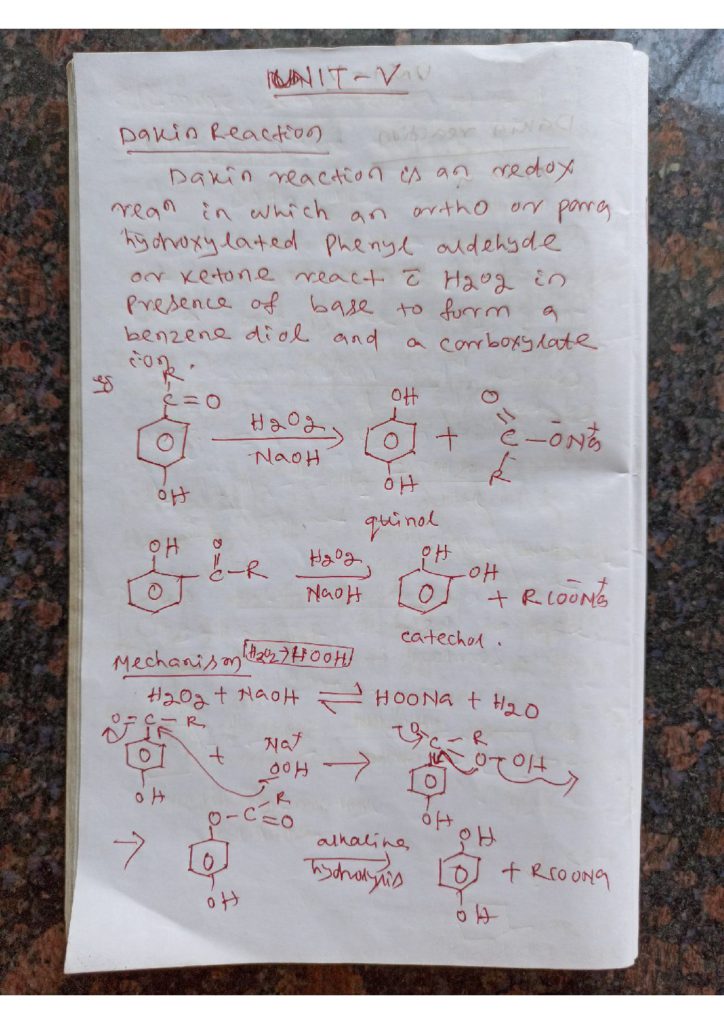 UNIT-V
Dakin Reaction
Dakin reaction is an redox
rean in which an ortho or para
hydroxylated phenyl aldehyde
or ketone react c̄ H2O2 in
presence of base to form a
benzene diol and a carboxylate
ion.
R
C=O
H2O2
NaOH
OH
OH
+
O
C-ŌNa+
R
OH
quinol
OH
O
C-R
H2O2
NaOH
OH
OH
+ RCOŌNa+
catechol.
Mechanism
H2O2→HOOH
H2O2 + NaOH ⇌ HOONa + H2O
O=C-R
OH
+
Na+
OOH
→
O
C-R
O-OH
OH
→
O-C=O
R
OH
alkaline
hydrolysis
OH
OH
+ RCOONa